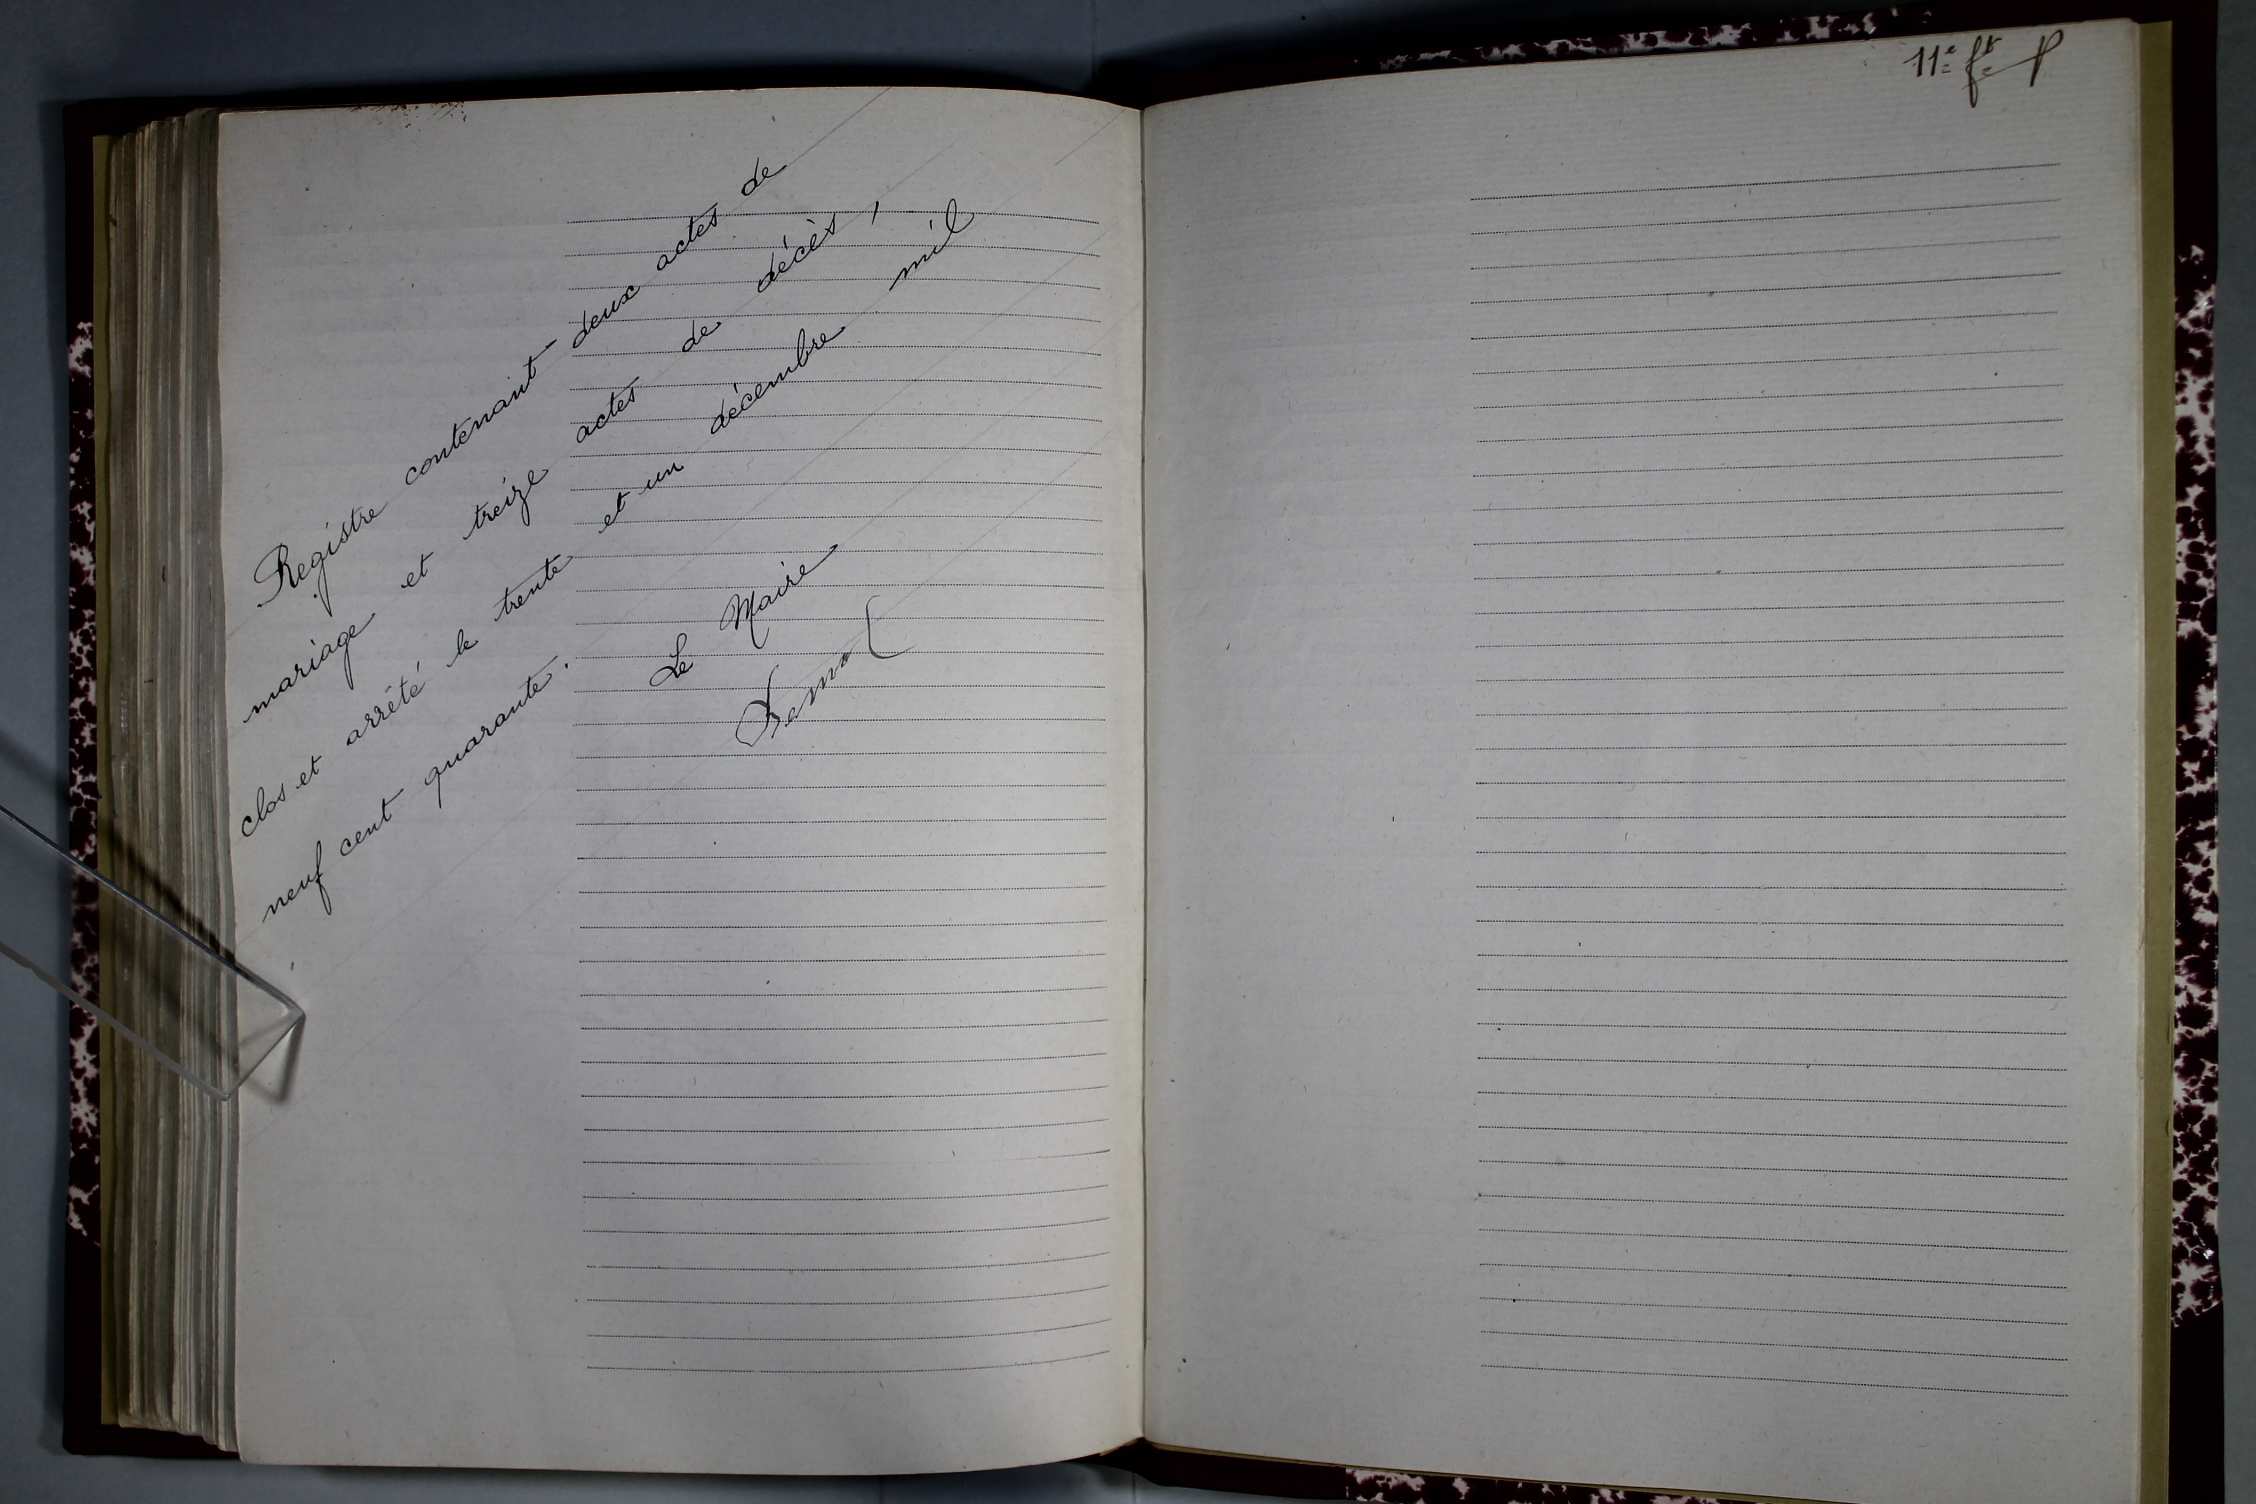 Registre contenant deux actes de
mariage et treize actes de décès,
clos et arrêté le trente et un décembre mil
neuf cent quarante.
Le Maire
11e ft